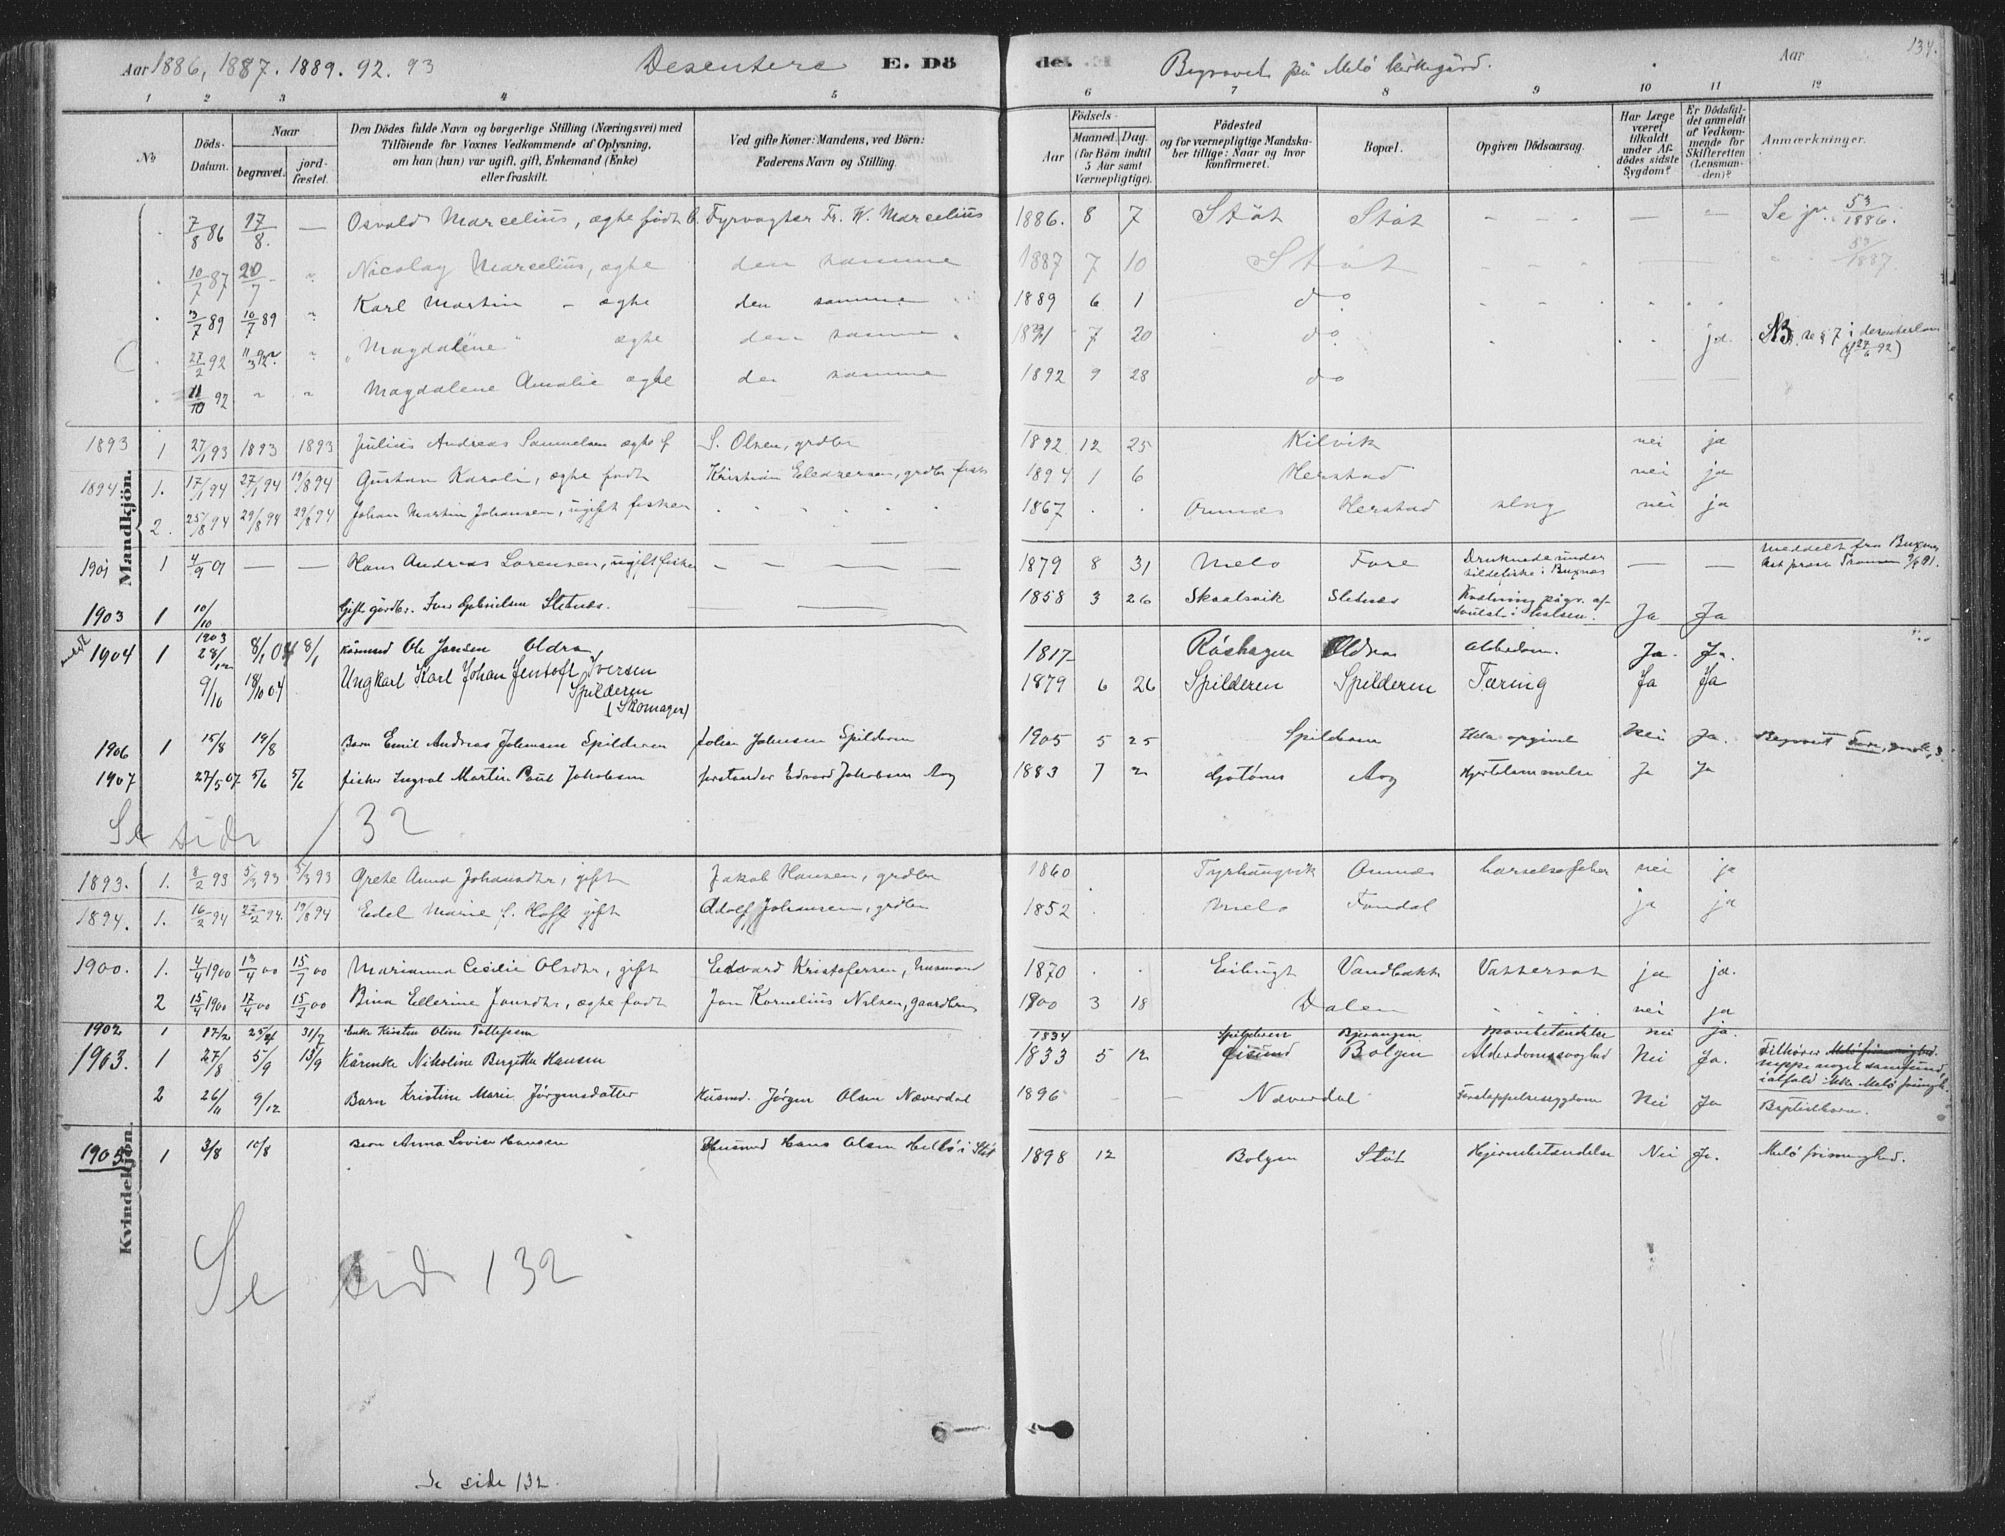 Aar 1886, 1887. 1889. 92. 93 Desentere E. Dö
de. Begravet på Melö kirkegård. Aar 134.
1 2 3 4 5
6 7 8 9 10 11 12
No
Döds-Datum.
Naar
begravet.
jord-fæstet.
Den Dödes fulde Navn og borgerlige Stilling (Næringsvei) med
Tilföiende for Voxnes Vedkommende af Oplysning,
om han (hun) var ugift, gift, Enkemand (Enke)
eller fraskilt.
Ved gifte Koner: Mandens, ved Börn:
Faderens Navn og Stilling.
Födsels-
Aar
Maaned. Dag.
(for Börn indtil
5 Aar samt
Værnepligtige).
Födested
og for værnepligtige Mandska-
ber tillige: Naar og hvor
konfirmeret.
Bopæl.
Opgiven Dödsaarsag.
Har Læge
været
tilkaldt
under Af-
dödes sidste
Sygdom?
Er Dödsfal-
det anmeldt
af Vedkom-
mende for
Skifteretten
(Lensman-
den)?
Anmærkninger.
Mandkjön.
7/8 86 17/8. — Osvald Marcelius, ægte födt Fyrvogter Fr. W. Marcelius 1886. 8 7 Stöt Stöt - - - — - Se jr. 53/1886.
10/7 87 20/7 " Nicolay Marcelius, ægte den samme 1887 7 10 Stöt 53/1887
3/7 89 10/7 89 " Karl Martin - ægte den samme 1889 6 1 do
27/2 92 " "Magdalene" ægte den samme 7 20 do ja. NB. se § 7 i
11/10 92 " " Magdalene Amalie ægte den samme 1892 9 28 do
1893 1 27/1 93 1893 1893 Julius Andreas Samuelsen ægte f S. Olsen, grdbr 1892 12 25 Kilvik nei ja
1894 1. 17/1 94 27/1 94 19/8 94 Gustav Karoli, ægte födt Kristian Eleazersen, grdbr 1894 1 6 Herstad nei ja
2. 25/8 94 29/8 94 29/8 94 Johan Martin Johansen, ugift fisker 1867 . . Ornæs Herstad slag nei ja
1901 1 4/9 01 — — Hans Andreas Sorensen, ugift fisker - — — — 1879 8 31 Melö Fore Druknede under sildefiske i Buxnes — — Meddelt fra Buxnes
1903 1 10/10 Gift gårdbr. Iver Gabrielsen Sletnæs. 1858 3 26 Skaalsvik Sletnæs Ja Ja
1904 1 1903 28/12 8/1 04 8/1 Kårmd Ole Jansen Oldra 1817 Röshagen Oldra Alderdom. Ja. Ja.
9/10 18/10 04 Ungkarl Karl Johan Jentoft Iversen 1879 6 26 Spilderen Spilderen Tæring Ja Ja
Spilderen
(Skomager)
1906 1 15/8 19/8 Barn Emil Andreas Johansen Spilderen Johan Johnsen Spilderen 1905 5 25 Spilderen Ikke opgivet Nei Ja. Begravet Fore,
1907 27/5 07 5/6 5/6 fisker Ingval Martin Paul Jakobsen forstander Edvard Jakobsen Aag 1883 7 2 Gotönes Aag Hjertelammelse Ja Ja
Se side 132
Kvindekjön.
1893. 1. 8/2 93 5/3 93 5/3 93 Grete Anna Johansdtr, gift Jakob Hansen, grdbr 1860 . Tyrhaugvik Ornæs barselsfeber nei ja
1894. 1. 16/2 94 27/2 94. 19/8 94 Edel Marie f. Hoff gift Adolf Johansen, grdbr 1852 . . Melö Fondal ja ja
1900. 1. 4/4 1900 13/4 00 15/7 00 Marianna Cecilie Olsdtr, gift Edvard Kristofersen, husmand 1870 . . Vandbakk Vattersot ja ja.
2 15/4 1900 17/4 00 15/7 00 Bina Ellerine Jansdtr, ægte födt Jan Kornelius Nilsen, gaardbr 1900 3 18 Dalen nei ja
1902 1 17/2 25/2 31/7 Enke Kirsten Oline Tollefsen 1834 Spilderen Bjerangen nei ja.
1903. 1 27/8 5/9 13/9 Kårenke Nikoline Birgitte Hansen 1833 5 12 Bolgen Alderdomssvaghed Nei Ja. Tilhörer
neppe noget samfund,
ialfald ikke Melö frimgh.
2 26/11 9/12 Barn Kristine Marie Jörgensdatter Husmd. Jörgen Olsen Næverdal 1896 - - Næverdal Nei Ja Baptistbarn.
1905 1 3/8 10/8 Barn Anna Lovise Hansen Husmd Hans Olsen i Stöt 1898 12 Bolgen Stöt Hjernebetændelse Nei Ja. Melö frimenighed.
Se side 132
Se side 132.